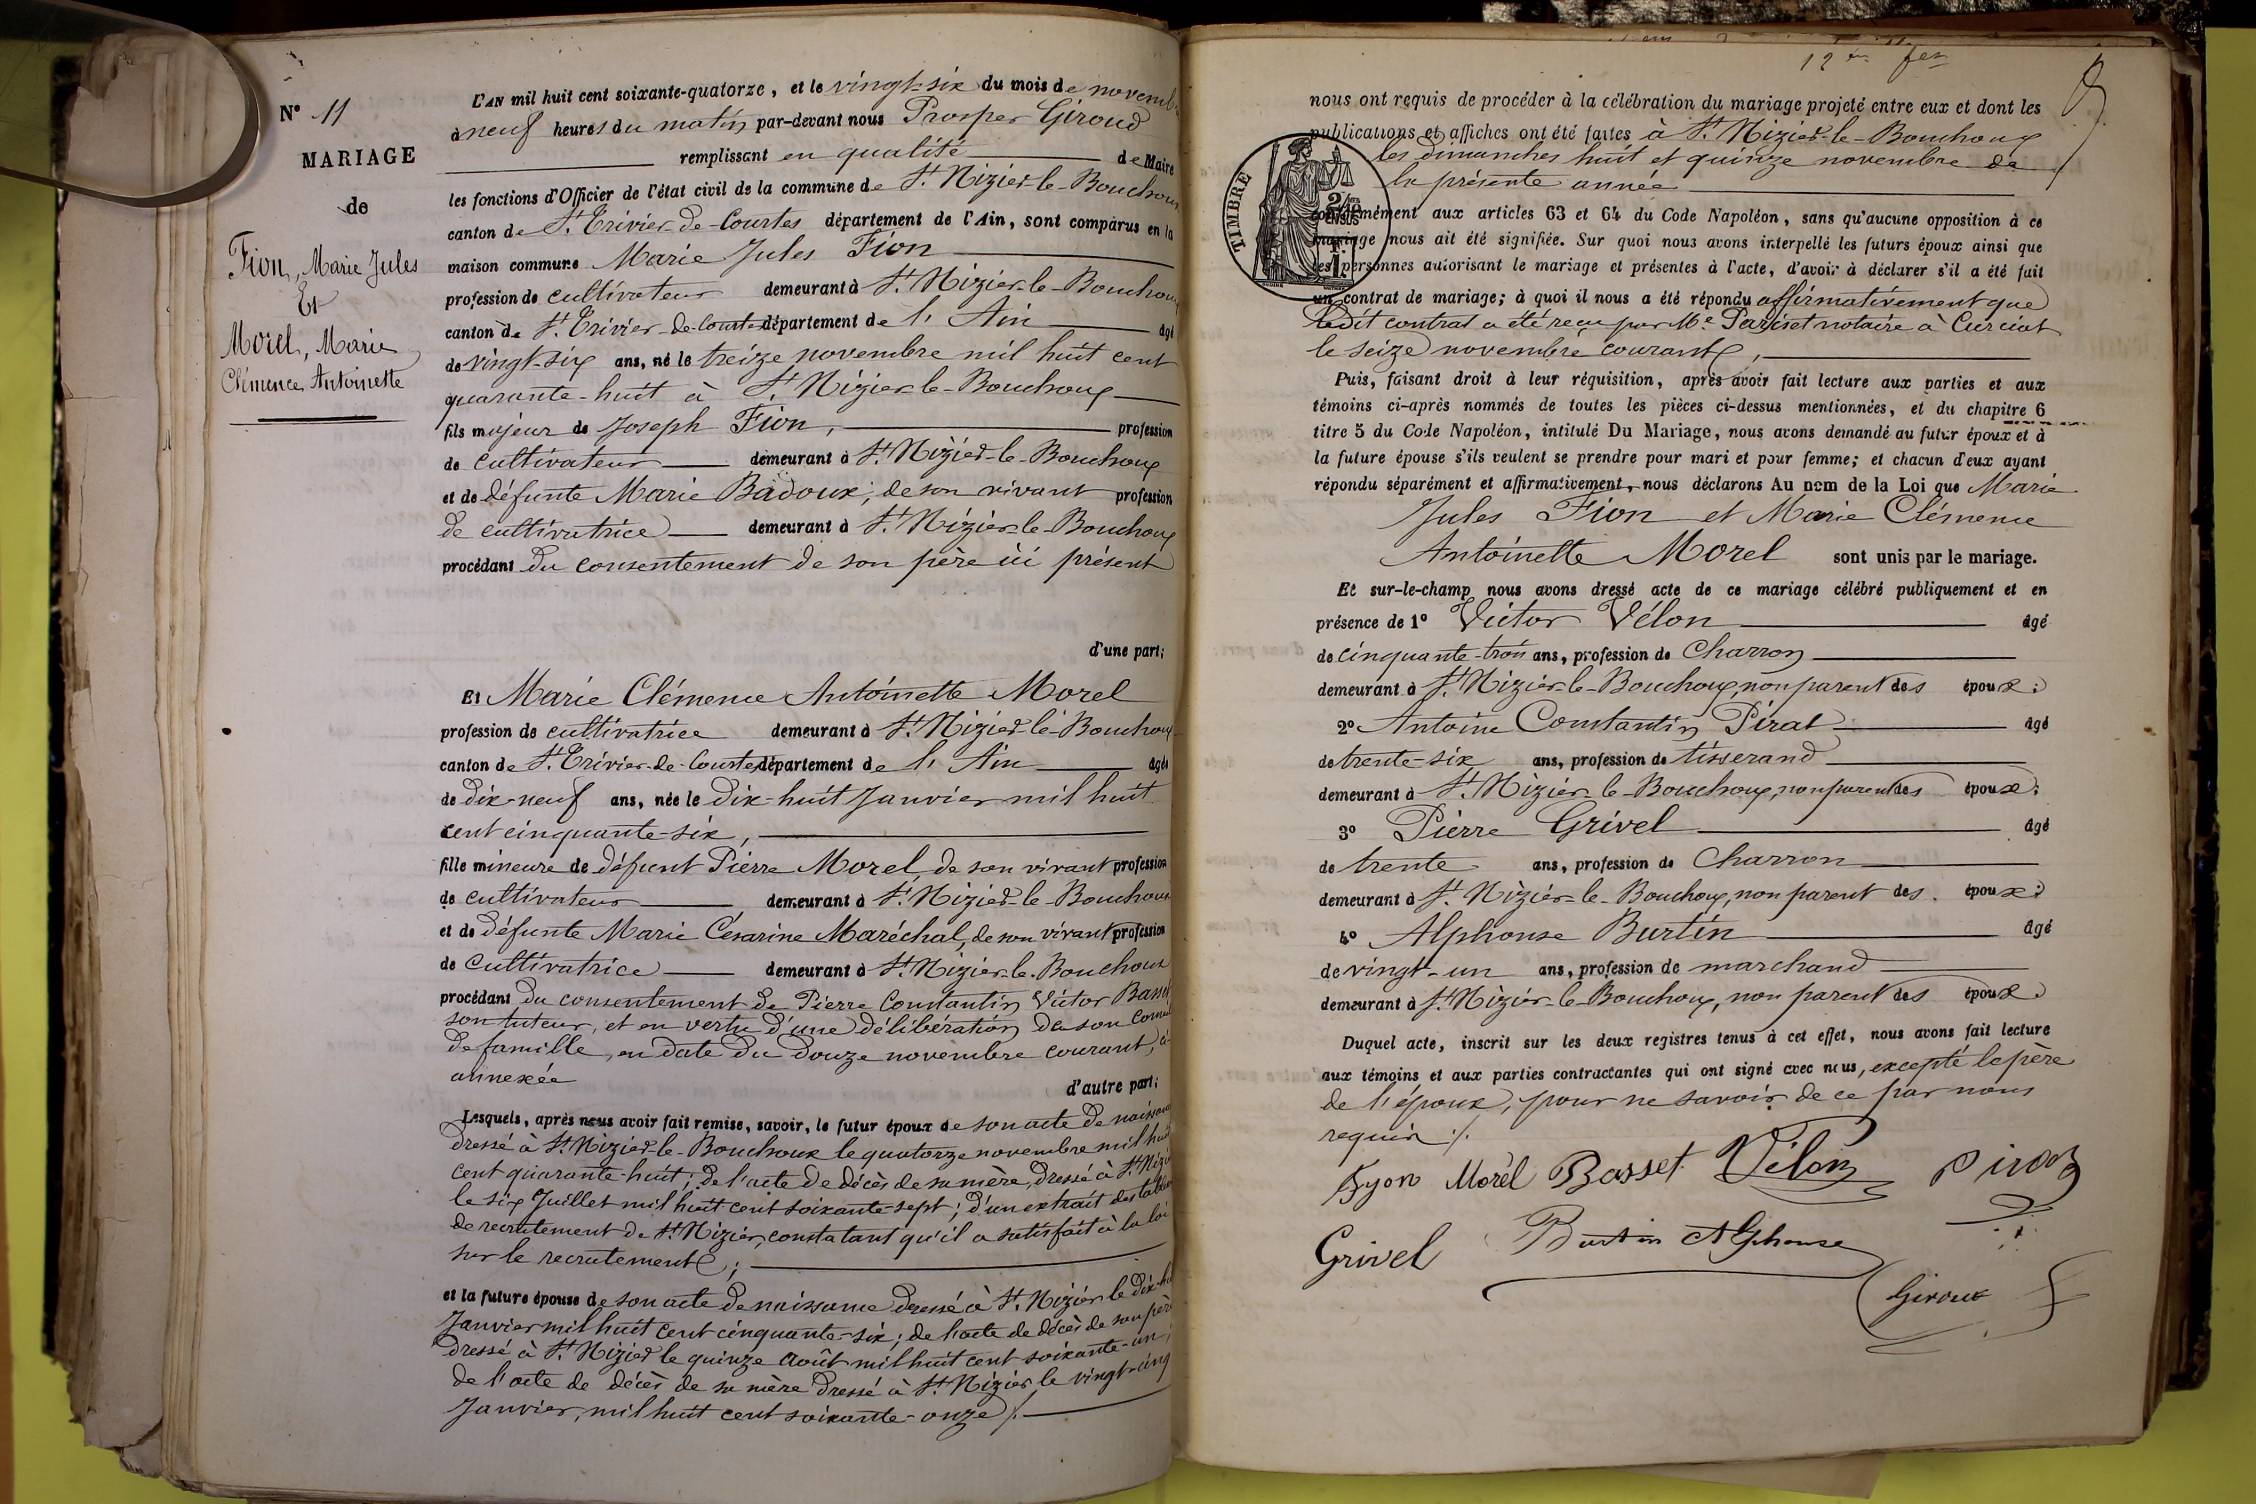 N° 11
MARIAGE
de
Fion, Marie Jules
Et
Morel, Marie
Clémence Antoinette
L'AN mil huit cent soixante-quatorze, et le vingt-six du mois de novemb
à neuf heures du matin par-devant nous Prosper Giroud
remplissant en qualité de Maire
les fonctions d'Officier de l'état civil de la commune de St. Nizier-le-Bouchoux
canton de St. Trivier-de-Courtes département de l'Ain, sont comparus en la
maison commune Marie Jules Fion
profession de cultivateur demeurant à St. Nizier-le-Bouchoux
canton de St. Trivier-de-Courtes département de l'Ain âgé
de vingt-six ans, né le treize novembre mil huit cent
quarante-huit à St. Nizier-le-Bouchoux
fils majeur de Joseph Fion, profession
de cultivateur demeurant à St. Nizier-le-Bouchoux
et de défunte Marie Badoux, de son vivant profession
de cultivatrice demeurant à St. Nizier-le-Bouchoux
procédant du consentement de son père ici présent
d'une part;
Et Marie Clémence Antoinette Morel
profession de cultivatrice demeurant à St. Nizier-le-Bouchoux
canton de St. Trivier-de-Courtes département de l'Ain âgée
de dix-neuf ans, née le dix-huit Janvier mil huit
cent cinquante-six,
fille mineure de défunt Pierre Morel, de son vivant profession
de cultivateur demeurant à St. Nizier-le-Bouchoux
et de défunte Marie Césarine Maréchal, de son vivant profession
de cultivatrice demeurant à St. Nizier-le-Bouchoux
procédant du consentement de Pierre Constantin Victor Basset
son tuteur, et en vertu d'une délibération de son Conseil
de famille, en date du douze novembre courant, ci-
annexée
d'autre part;
Lesquels, après nous avoir fait remise, savoir, le futur époux de son acte de naissance
dressé à St. Nizier-le-Bouchoux le quatorze novembre mil huit
cent quarante-huit; de l'acte de décès de sa mère, dressé à St. Nizier
le six Juillet mil huit cent soixante-sept; d'un extrait des tableaux
de recrutement de St. Nizier, constatant qu'il a satisfait à la loi
sur le recrutement;
et la future épouse de son acte de naissance dressé à St. Nizier le dix-hu
Janvier mil huit cent cinquante-six; de l'acte de décès de son père
dressé à St. Nizier le quinze Août mil huit cent soixante-un;
de l'acte de décès de sa mère dressé à St. Nizier le vingt-cinq
Janvier, mil huit cent soixante-onze /.
12 fer
nous ont requis de procéder à la célébration du mariage projeté entre eux et dont les
publications et affiches ont été faites à St. Nizier-le-Bouchoux
les dimanches huit et quinze novembre de
la présente année
TIMBRE
conformément aux articles 63 et 64 du Code Napoléon, sans qu'aucune opposition à ce
mariage nous ait été signifiée. Sur quoi nous avons interpellé les futurs époux ainsi que
les personnes autorisant le mariage et présentes à l'acte, d'avoir à déclarer s'il a été fait
un contrat de mariage; à quoi il nous a été répondu affirmativement que
ledit contrat a été reçu par Me. Pariset notaire à Curciat
le seize novembre courant,
Puis, faisant droit à leur réquisition, après avoir fait lecture aux parties et aux
témoins ci-après nommés de toutes les pièces ci-dessus mentionnées, et du chapitre 6
titre 5 du Code Napoléon, intitulé Du Mariage, nous avons demandé au futur époux et à
la future épouse s'ils veulent se prendre pour mari et pour femme; et chacun d'eux ayant
répondu séparément et affirmativement, nous déclarons Au nom de la Loi que Marie
Jules Fion et Marie Clémence
Antoinette Morel sont unis par le mariage.
Et sur-le-champ nous avons dressé acte de ce mariage célébré publiquement et en
présence de 1° Victor Vélon âgé
de cinquante-trois ans, profession de Charron
demeurant à St. Nizier-le-Bouchoux, non parent des époux;
2° Antoine Constantin Pirat âgé
de trente-six ans, profession de tisserand
demeurant à St. Nizier-le-Bouchoux, non parent des époux;
3° Pierre Grivel âgé
de trente ans, profession de Charron
demeurant à St. Nizier-le-Bouchoux, non parent des époux;
4° Alphonse Burtin âgé
de vingt-un ans, profession de marchand
demeurant à St. Nizier-le-Bouchoux, non parent des époux
Duquel acte, inscrit sur les deux registres tenus à cet effet, nous avons fait lecture
aux témoins et aux parties contractantes qui ont signé avec nous, excepté le père
de l'époux, pour ne savoir de ce par nous
requis ./.
Fyon Morel Basset Vélon
Grivel Burtin Alphonse
Giroud